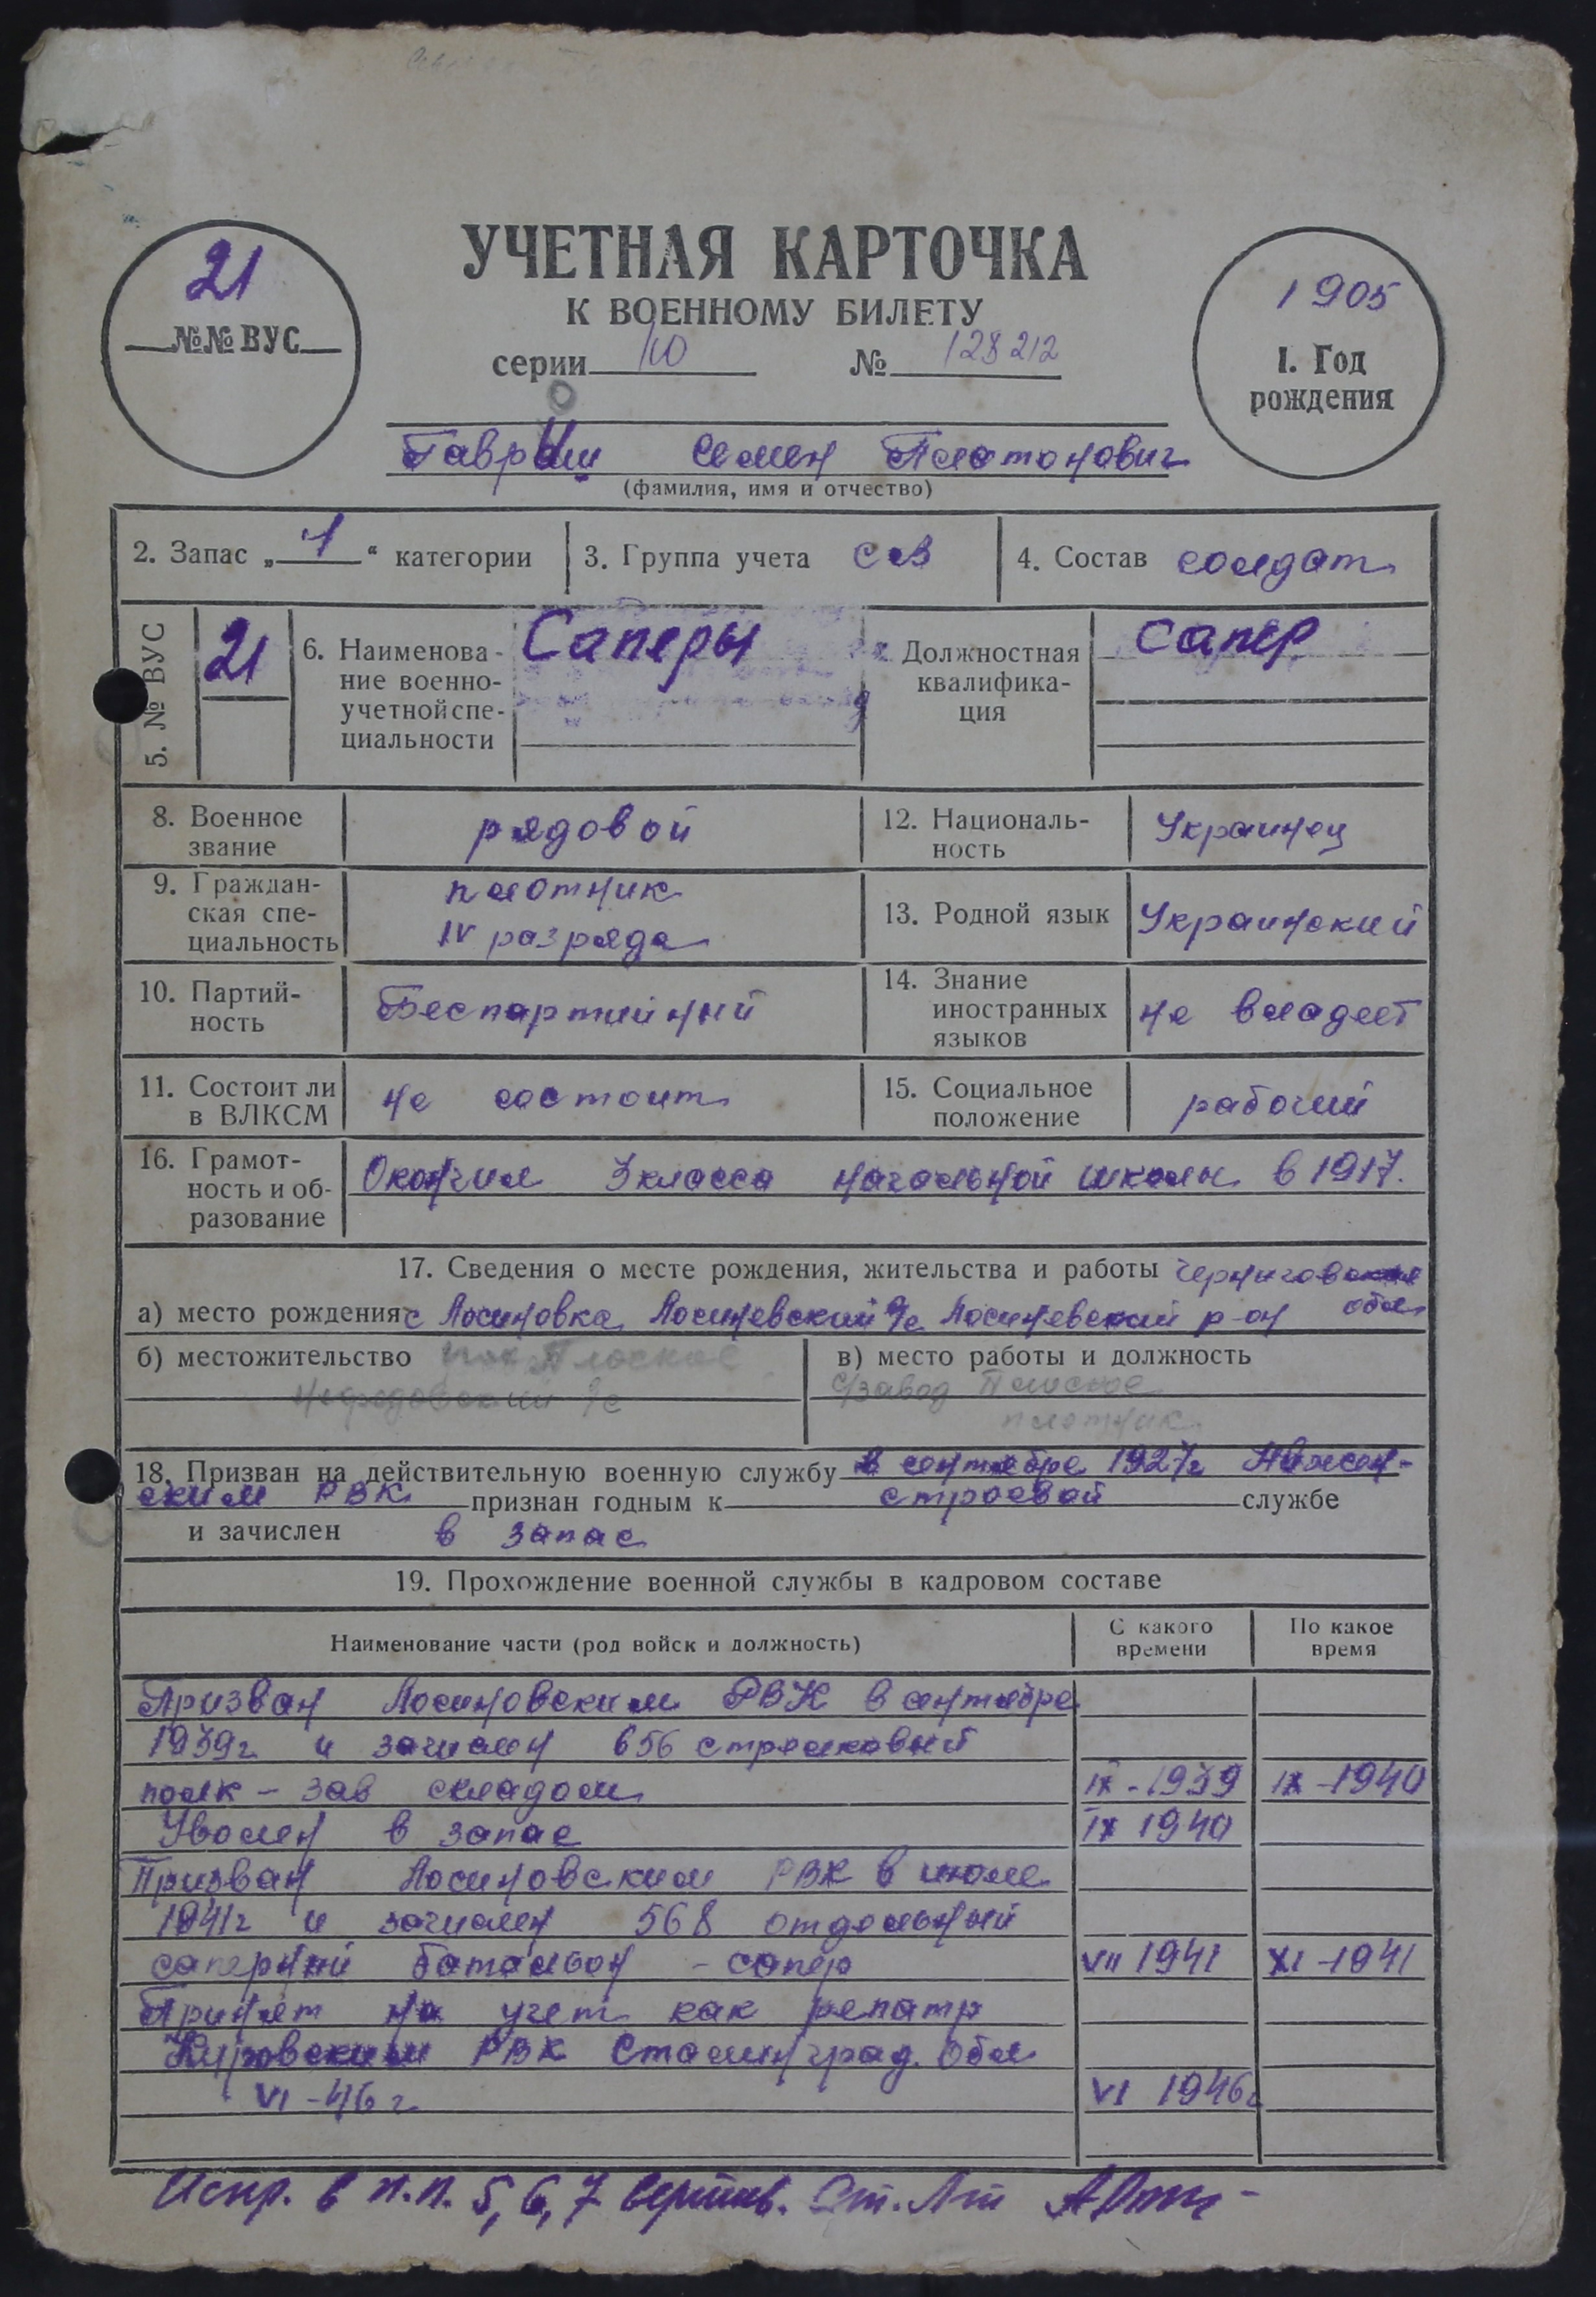 21
№№ ВУС
УЧЕТНАЯ КАРТОЧКА
К ВОЕННОМУ БИЛЕТУ
серии Ю № 128212
1905
1. Год
рождения
Гавриш Семен Платонович
(фамилия, имя и отчество)
2. Запас „1“ категории
3. Группа учета СА
4. Состав солдат
5. № ВУС
21
6. Наименова-
ние военно-
учетной спе-
циальности
Саперы
7. Должностная
квалифика-
ция
Сапер
8. Военное
звание
рядовой
12. Националь-
ность
Украинец
9. Граждан-
ская спе-
циальность
плотник
IV разряда
13. Родной язык
Украинский
10. Партий-
ность
Беспартийный
14. Знание
иностранных
языков
не владеет
11. Состоит ли
в ВЛКСМ
не состоит
15. Социальное
положение
рабочий
16. Грамот-
ность и об-
разование
Окончил 3 класса начальной школы в 1917.
17. Сведения о месте рождения, жительства и работы Черниговская
обл
а) место рождения с Лосиновка Лосиневский с/с Лосиневский р-он
б) местожительство Плоское
с/с
в) место работы и должность
с/завод Плоское
плотник
18. Призван на действительную военную службу в сентябре 1927г Нежен-
ским РВК признан годным к строевой службе
и зачислен в запас
19. Прохождение военной службы в кадровом составе
Наименование части (род войск и должность)
С какого
времени
По какое
время
Призван Лосиновским РВК в сентябре
1939г и зачислен 656 стрелковый
полк - зав складом IX - 1939 IX - 1940
Уволен в запас IX 1940
Призван Лосиновским РВК в июле
1941г и зачислен 568 отдельный
саперный батальон - сапер VII 1941 XI - 1941
Принят на учет как репатр
РВК Сталинград. обл
VI - 46 г VI 1946г
Испр. в п.п. 5, 6, 7 Ст. Л-т